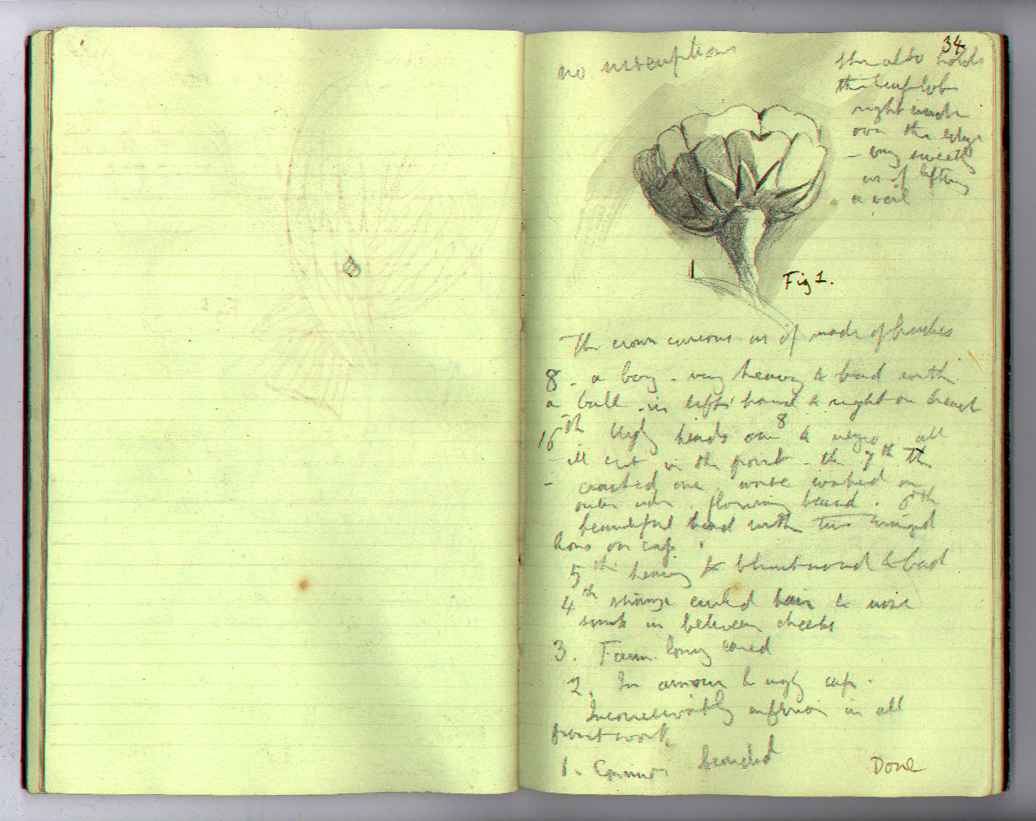 no inscriptions
34
she also holds
the leaf lob
right under
over the edge
- very sweetly
as if lifting
a veil
Fig 1.
The crown curious as if made of brushes
8. a boy. very heavy & bad with
a ball in left hand & right on breast
16th Ugly heads one 8 & negro all
ill cut in the front - the 7th The
- cracked one. worse worked on
outer side. flowing beard. 6th
beautiful head with two winged
lions on cap.
5th heavy & blunt nosed & bad
4th strange curled hair & nose
sunk in between cheeks
3. Faun long eared
2. In armour & ugly cap.
Inconceivably inferior in all
front work.
1. Common bearded
Done